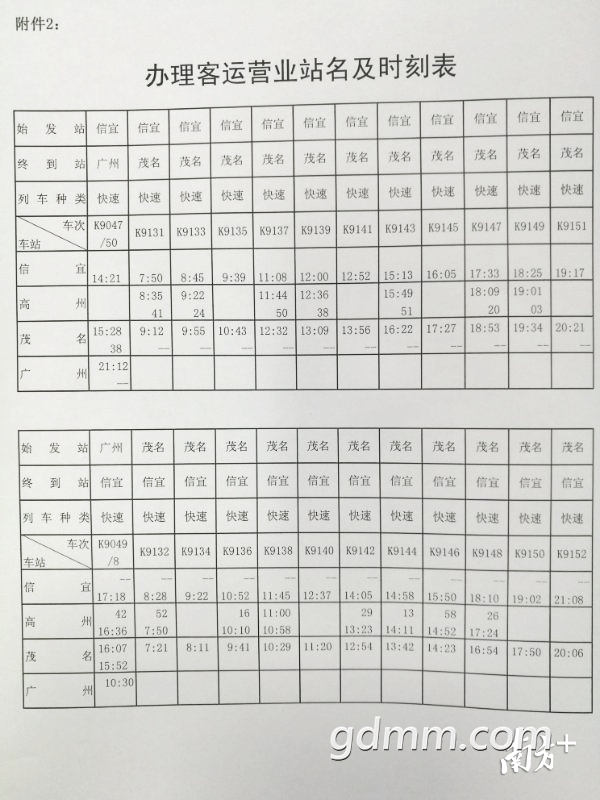 附件2：
办理客运营业站名及时刻表
始发站 信宜 信宜 信宜 信宜 信宜 信宜 信宜 信宜 信宜 信宜 信宜 信宜
终到站 广州 茂名 茂名 茂名 茂名 茂名 茂名 茂名 茂名 茂名 茂名 茂名
列车种类 快速 快速 快速 快速 快速 快速 快速 快速 快速 快速 快速 快速
车次 K9047 K9131 K9133 K9135 K9137 K9139 K9141 K9143 K9145 K9147 K9149 K9151
车站 /50
信宜 14:21 7:50 8:45 9:39 11:08 12:00 12:52 15:13 16:05 17:33 18:25 19:17
高州 8:35 9:22 11:44 12:36 15:49 18:09 19:01
41 24 50 38 51 20 03
茂名 15:28 9:12 9:55 10:43 12:32 13:09 13:56 16:22 17:27 18:53 19:34 20:21
38 -- -- -- -- -- -- -- -- -- -- --
广州 21:12
--
始发站 广州 茂名 茂名 茂名 茂名 茂名 茂名 茂名 茂名 茂名 茂名 茂名
终到站 信宜 信宜 信宜 信宜 信宜 信宜 信宜 信宜 信宜 信宜 信宜 信宜
列车种类 快速 快速 快速 快速 快速 快速 快速 快速 快速 快速 快速 快速
车次 K9049 K9132 K9134 K9136 K9138 K9140 K9142 K9144 K9146 K9148 K9150 K9152
车站 /8
-- -- -- -- -- -- -- -- -- -- -- --
信宜 17:18 8:28 9:22 10:52 11:45 12:37 14:05 14:58 15:50 18:10 19:02 21:08
高州 42 52 16 11:00 29 13 58 26
16:36 7:50 10:10 10:58 13:23 14:11 14:52 17:24
茂名 16:07 7:21 8:11 9:41 10:29 11:20 12:54 13:42 14:23 16:54 17:50 20:06
15:52
广州 10:30
gdmm.com
南方+